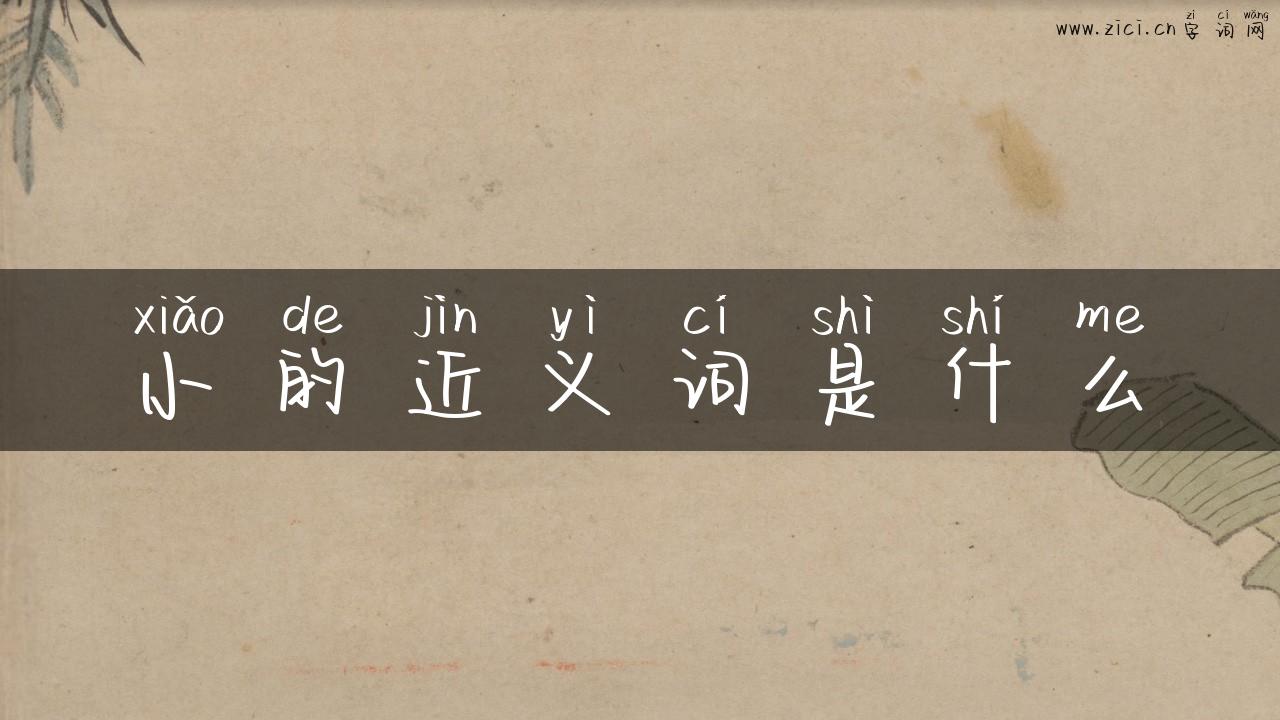 zì cí wǎng
www.zici.cn 字词网
xiǎo de jìn yì cí shì shí me
小的近义词是什么